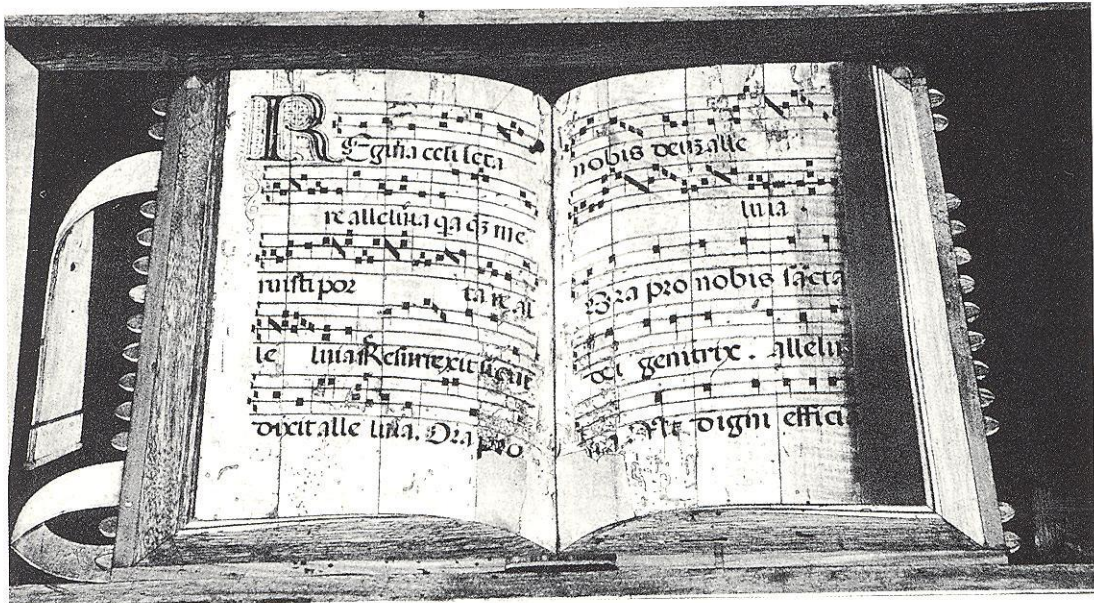 REgina celi leta
re alleluia qa q̃ me
ruisti por ta re al
le luia Resurrexit sicut
dixit alle luia. Ora pro
nobis deuz alle
luia
Ora pro nobis sãcta
dei genitrix. allelu
ia. Ut digni effici